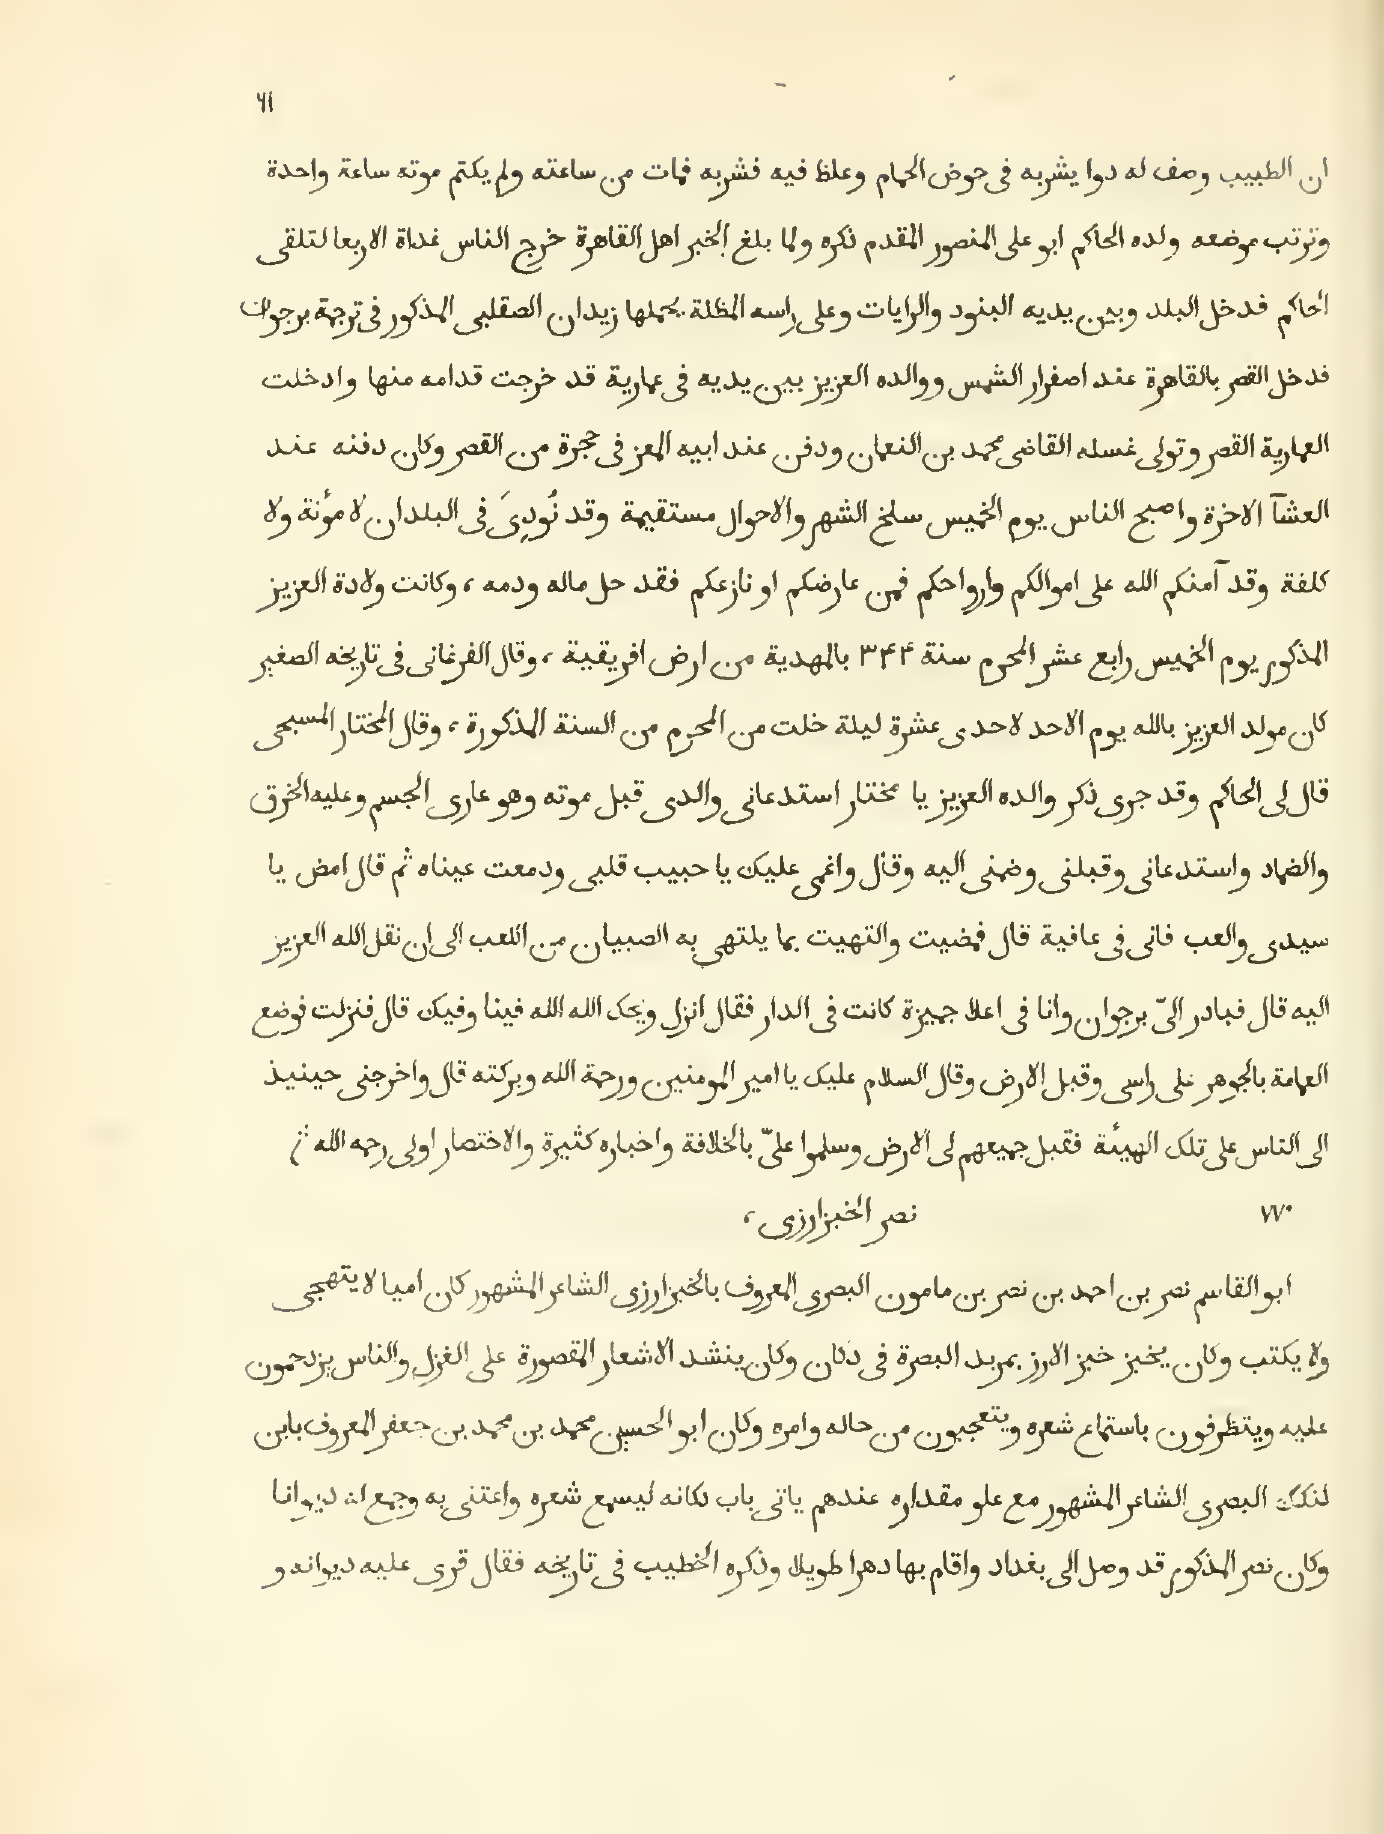 ٦١
ان الطبيب وصف له دوا يشربه فى حوض الحمام وغلظ فيه فشربه فمات من ساعته ولم يكتم موته ساعة واحدة
وترتب موضعه ولده الحاكم ابو على المنصور المقدم ذكره ولما بلغ الخبر اهل القاهرة خرج الناس غداة الاربعا لتلقى
الحاكم فدخل البلد وبين يديه البنود والرايات وعلى راسه المظلة يحملها زيدان الصقلبى المذكور فى ترجمة برجوان
فدخل القصر بالقاهرة عند اصفرار الشمس ووالده العزيز بين يديه فى عمارية قد خرجت قدامه منها وادخلت
العمارية القصر وتولى غسله القاضى محمد بن النعمان ودفن عند ابيه المعز فى حجرة من القصر وكان دفنه عند
العشآ الاخرة واصبح الناس يوم الخميس سلخ الشهر والاحوال مستقيمة وقد نُودِىَ فى البلدان لا مؤنة ولا
كلفة وقد آمنكم الله على اموالكم وارواحكم فمن عارضكم او نازعكم فقد حل ماله ودمه ، وكانت ولادة العزيز
المذكور يوم الخميس رابع عشر المحرم سنة ٣۴۴ بالمهدية من ارض افريقية ، وقال الفرغانى فى تاريخه الصغير
كان مولد العزيز بالله يوم الاحد لاحدى عشرة ليلة خلت من المحرم من السنة المذكورة ، وقال المختار المسبحى
قال لى الحاكم وقد جرى ذكر والده العزيز يا مختار استدعانى والدى قبل موته وهو عارى الجسم وعليه الخرق
والضماد واستدعانى وقبلنى وضمنى اليه وقال واغمى عليك يا حبيب قلبى ودمعت عيناه ثم قال امض يا
سيدى والعب فانى فى عافية قال فمضيت والتهيت بما يلتهى به الصبيان من اللعب الى ان نقل الله العزيز
اليه قال فبادر الىّ برجوان وانا فى اعلا جميزة كانت فى الدار فقال انزل ويحك الله الله فينا وفيك قال فنزلت فوضع
العمامة بالجوهر على راسى وقبل الارض وقال السلام عليك يا امير المومنين ورحمة الله وبركته قال واخرجنى حينيذ
الى الناس على تلك الهيئة فقبل جميعهم لى الارض وسلموا علىّ بالخلافة واخباره كثيرة والاختصار اولى رحمه الله
٧٧٠ نصر الخبزارزى ،
ابو القاسم نصر بن احمد بن نصر بن مامون البصرى المعروف بالخبزارزى الشاعر المشهور كان اميا لا يتهجى
ولا يكتب وكان يخبز خبز الارز بمربد البصرة فى دكان وكان ينشد الاشعار المقصورة على الغزل والناس يزدحمون
عليه ويتظرفون باستماع شعره ويتعجبون من حاله وامره وكان ابو الحسين محمد بن محمد بن جعفر المعروف بابن
لنكك البصرى الشاعر المشهور مع علو مقداره عندهم ياتى باب دكانه ليسمع شعره واعتنى به وجمع له ديوانا
وكان نصر المذكور قد وصل الى بغداد واقام بها دهرا طويلا وذكره الخطيب فى تاريخه فقال قرى عليه ديوانه و